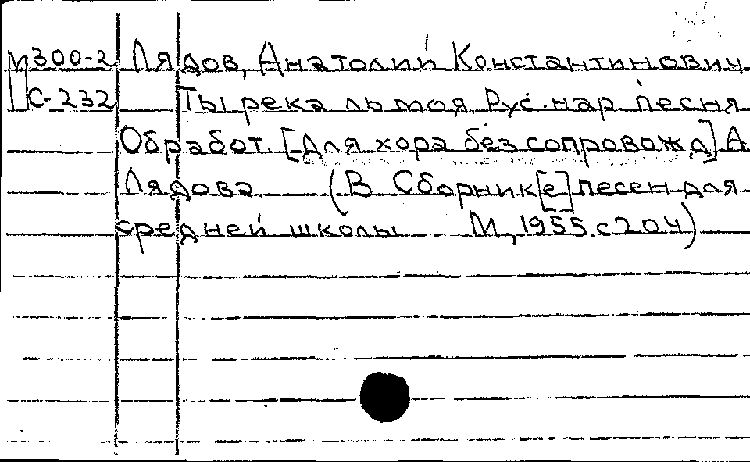 М300-2 Лядов, Анатолий Константинович
С-232 Ты река ль моя Рус. нар песня
Обработ. [Для хора без сопровожд] А
Лядова (В Сборник[е] песен для
средней школы М, 1955. с 204)